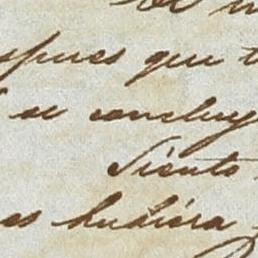 spues que t
se concluy
Siento
es hubiera